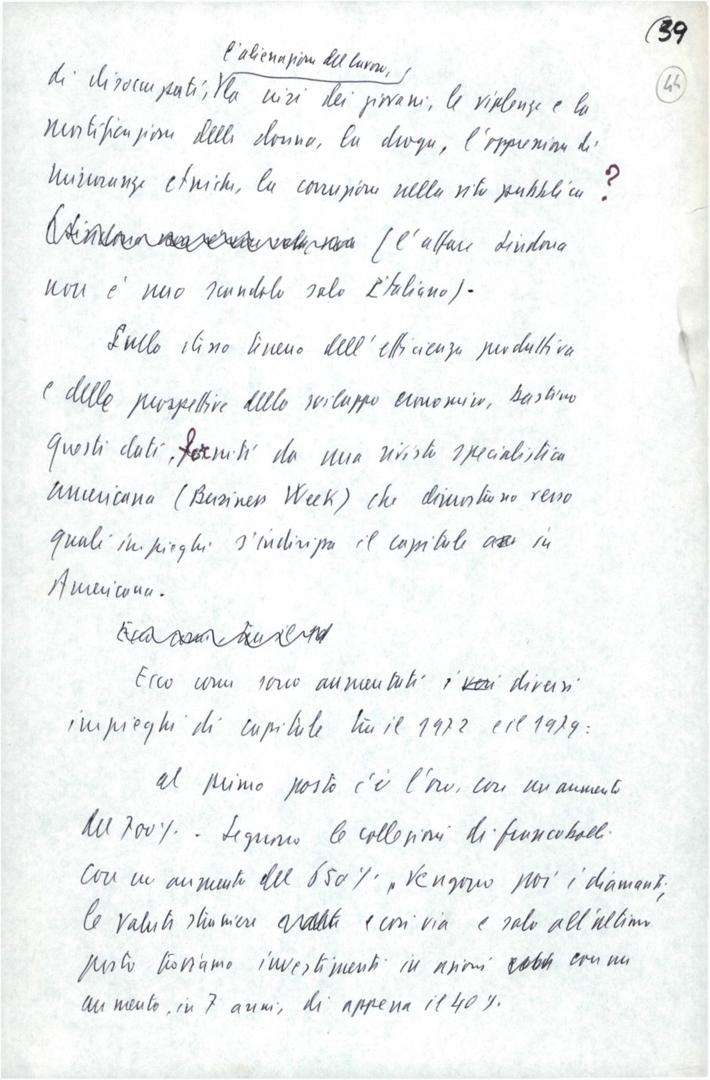 39
44
l'alienazione del lavoro,
di disoccupati, la crisi dei giovani, le violenze e la
mortificazione della donna, la droga, l'oppressione di
minoranze etniche, la corruzione nella vita pubblica ?
(Sindona (l'affare Sindona
non è uno scandalo solo italiano).
Sullo stesso terreno dell'efficienza produttiva
e delle prospettive dello sviluppo economico, bastino
questi dati, forniti da una rivista specialistica
americana (Business Week) che dimostrano verso
quali impieghi s'indirizza il capitale in
Americana.
Ecco come sono aumentati i vari diversi
impieghi di capitale tra il 1972 e il 1979:
al primo posto c'è l'oro, con un aumento
del 700%. Seguono le collezioni di francobolli
con un aumento del 650%. Vengono poi i diamanti,
le valute straniere e così via e solo all'ultimo
posto troviamo investimenti in azioni con un
aumento, in 7 anni, di appena il 40%.